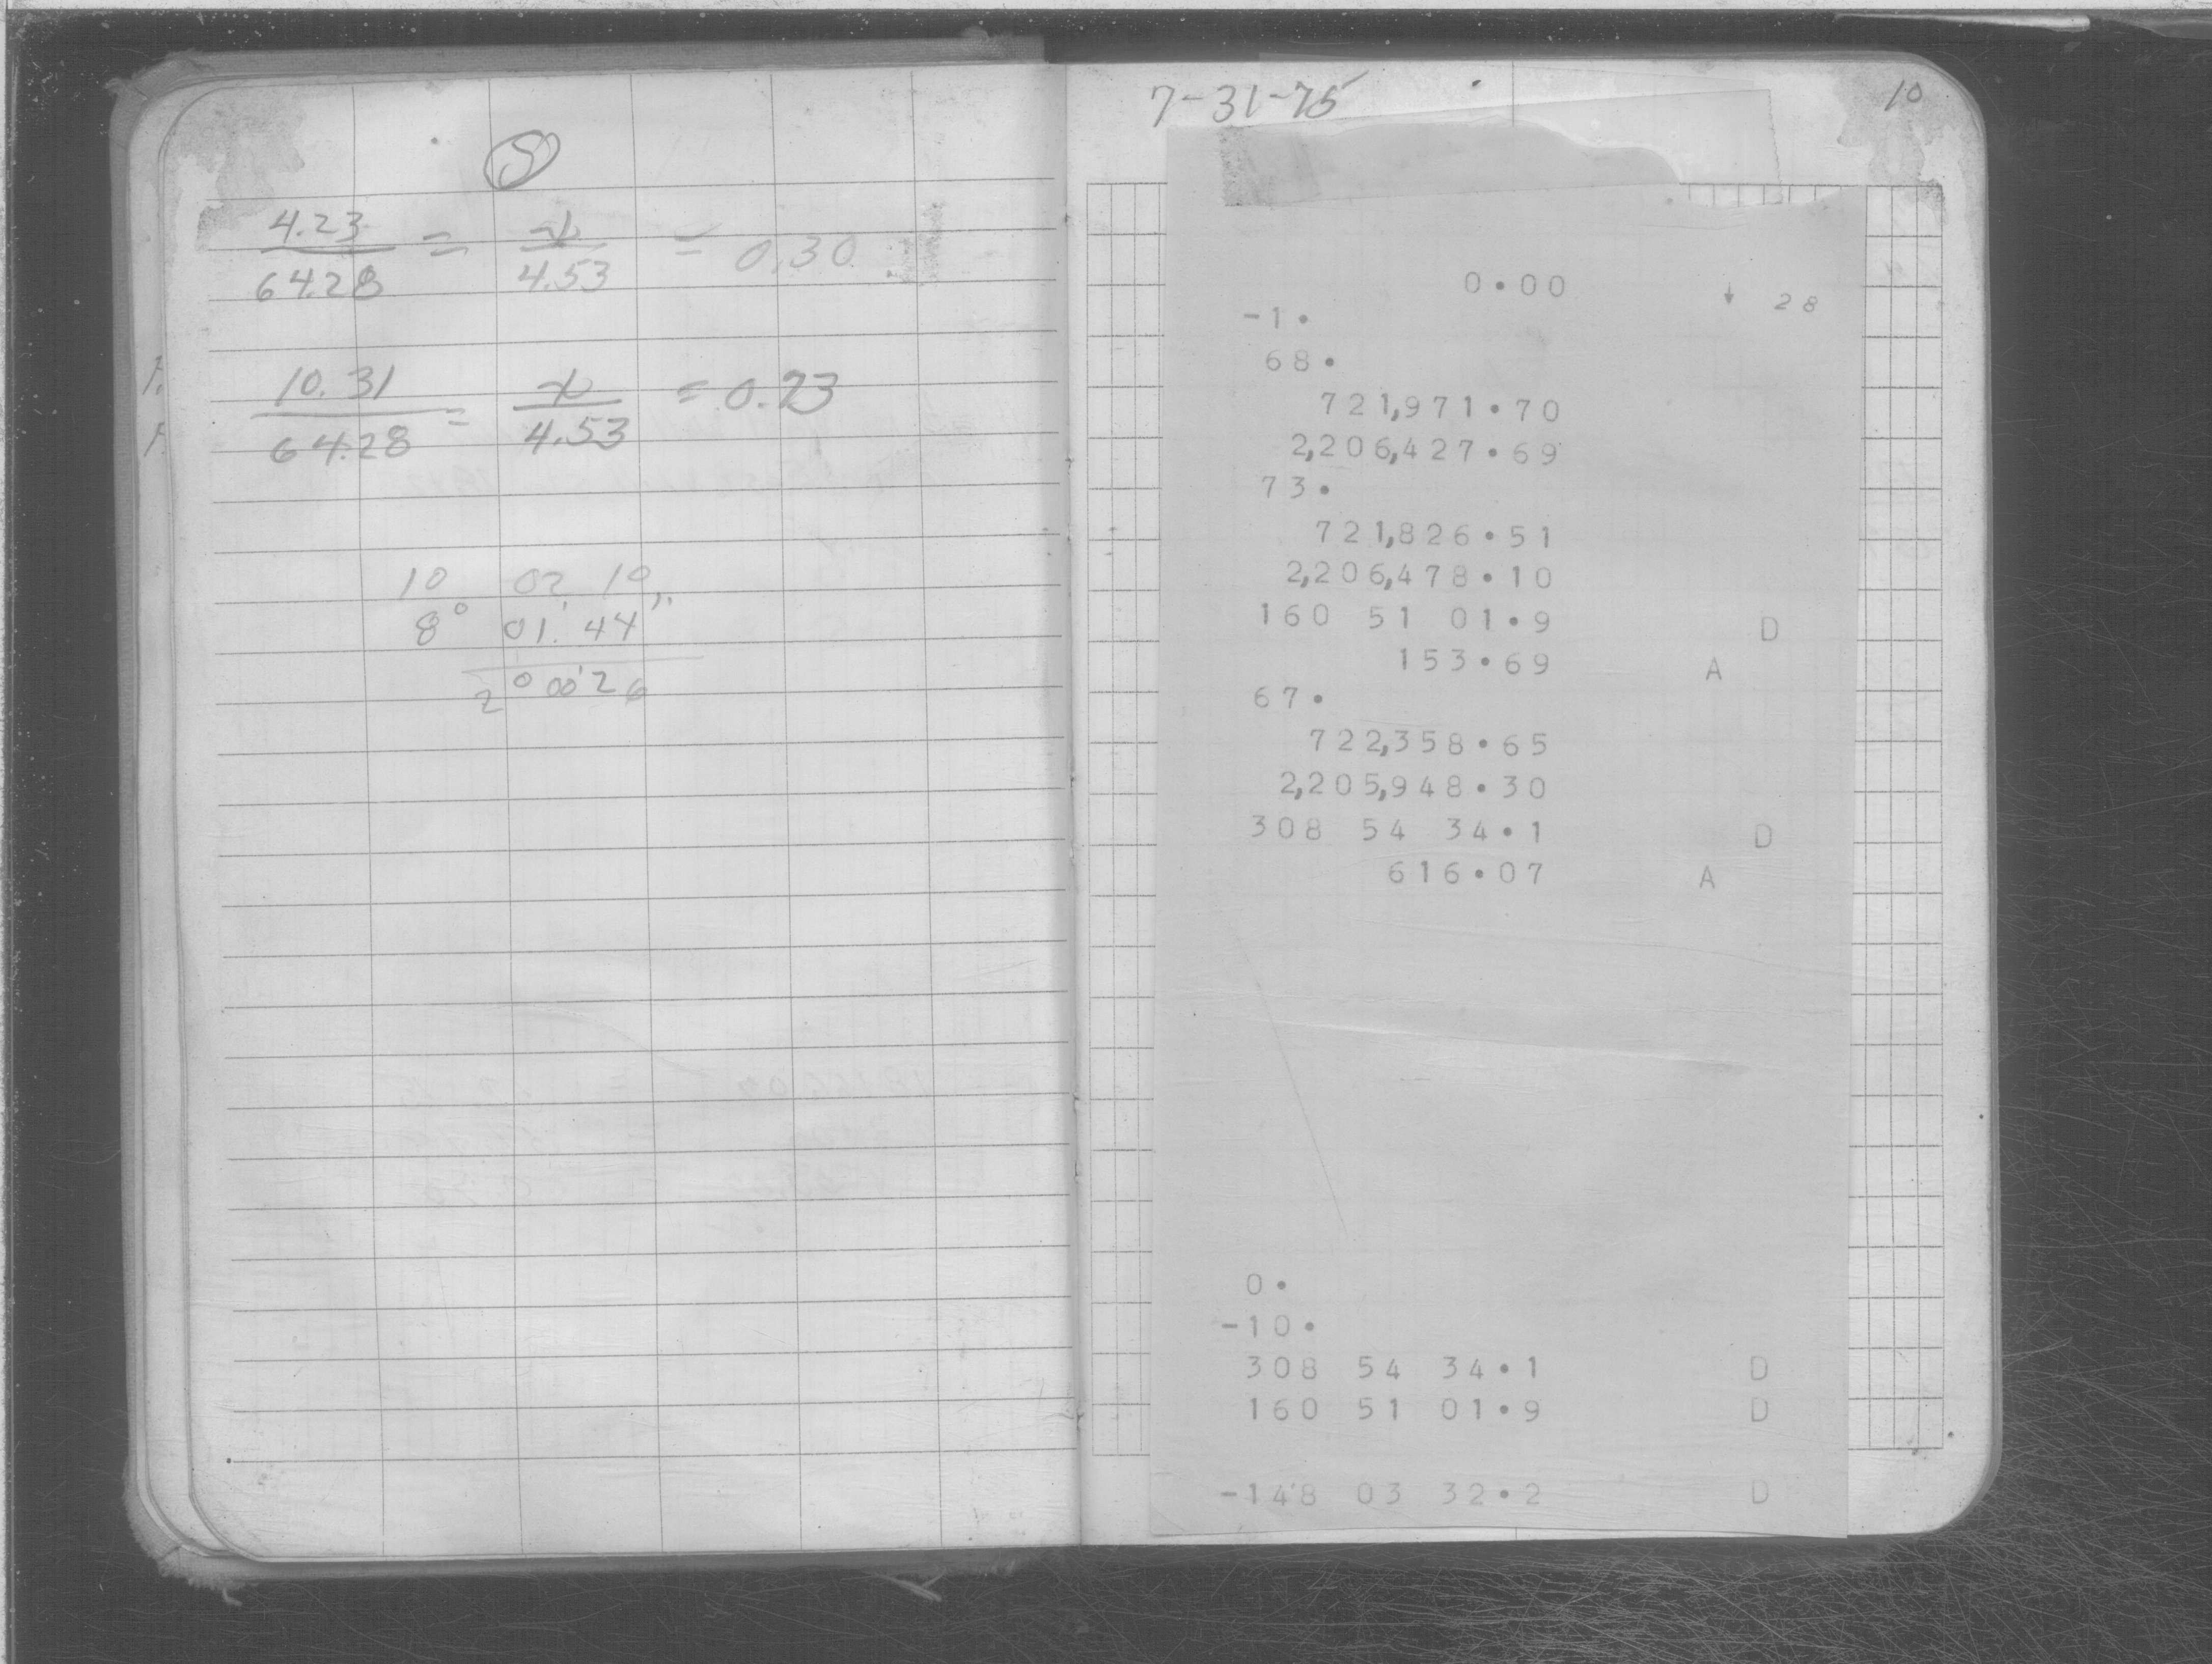 S
4.23 / 64.28 = x / 4.53 = 0.30
10.31 / 64.28 = x / 4.53 = 0.73
10 02 10
8° 01' 44"
2° 00' 26
7-31-75
10
0.00 ↓ 28
-1.
68.
721,971.70
2,206,427.69
73.
721,826.51
2,206,478.10
160 51 01.9 D
153.69 A
67.
722,358.65
2,205,948.30
308 54 34.1 D
616.07 A
0.
-10.
308 54 34.1 D
160 51 01.9 D
-148 03 32.2 D